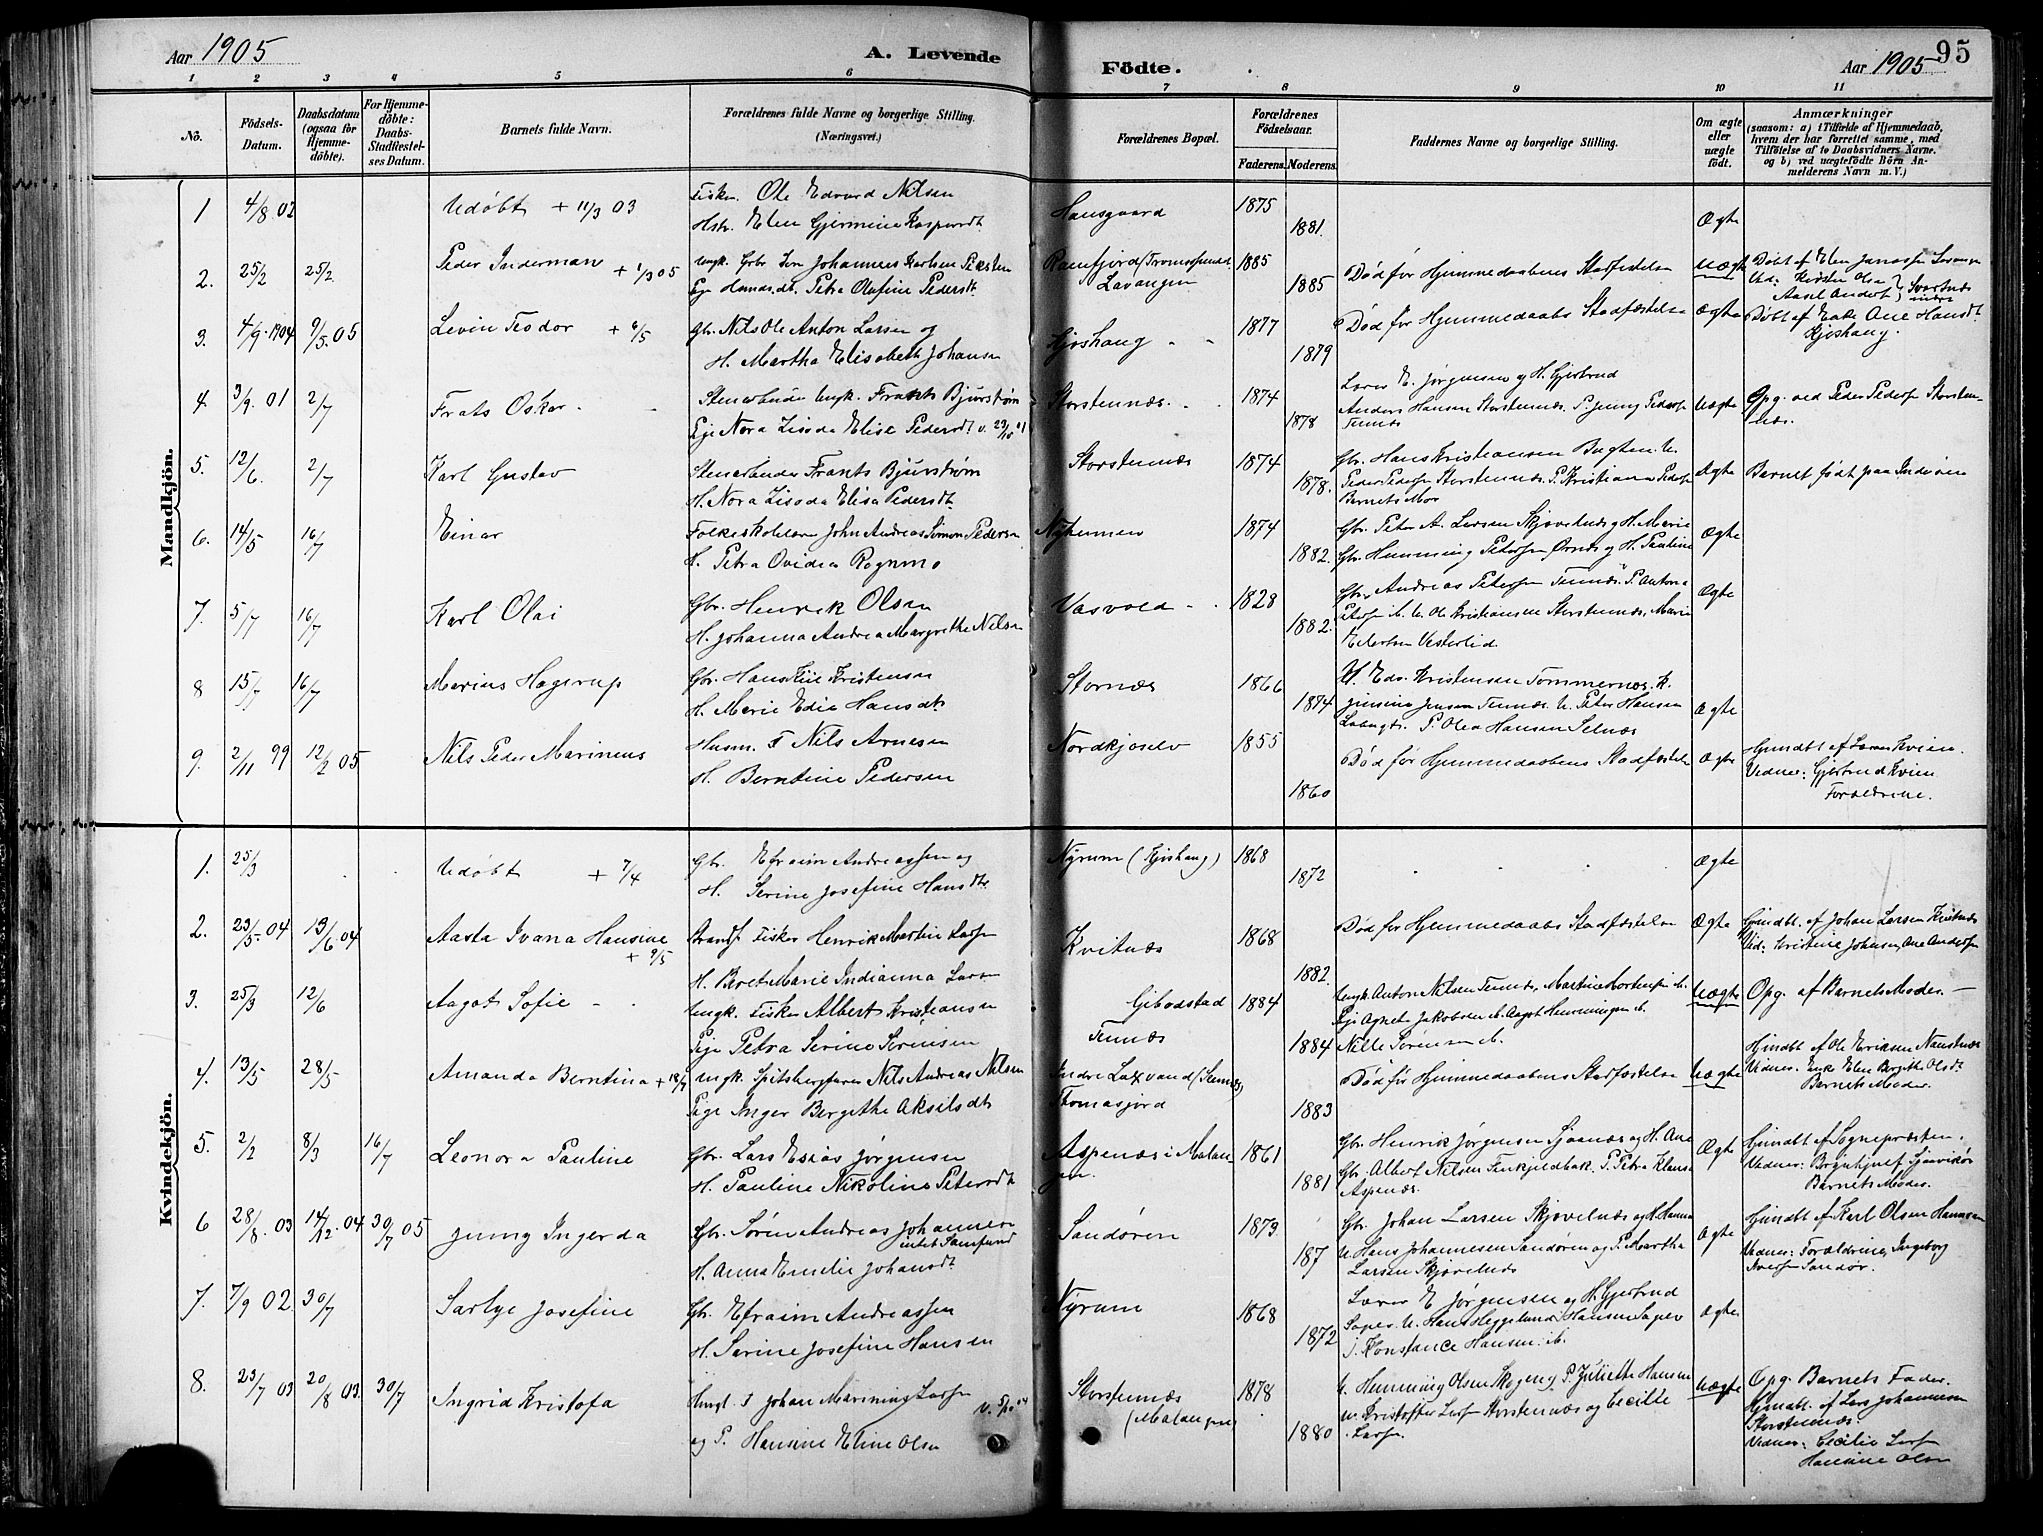 Aar 1905
A. Levende
Födte.
Aar 1905
95
1 2 3 4 5 6 7 8 9 10 11
No.
Födsels-Datum.
Daabsdatum (ogsaa for Hjemmedöbte).
For Hjemmedöbte: Daabs-Stadfæstelses Datum.
Barnets fulde Navn.
Forældrenes fulde Navne og borgerlige Stilling. (Næringsvei.)
Forældrenes Bopæl.
Forældrenes Födselsaar.
Faderens. Moderens.
Faddernes Navne og borgerlige Stilling.
Om ægte eller uægte födt.
Anmærkninger
(saasom: a) i Tilfælde af Hjemmedaab, hvem der har forrettet samme, med Tilföielse af to Daabsvidners Navne. og b) ved uægtefödte Börn Anmelderens Navn m. V.)
Mandkjön.
1 4/8 02 Udøbt + 11/3 03
Fisker. Ole Edvard Nilsen
Hstr. Elen Gjermine Kaspersdt
Hansgaard 1875 1881. Ægte
2. 25/2 25/2 Peder Inderman + 1/3 05
Ungk. Gbr Søn Johannes Karlsen
Pige Petra Olafine Pedersdt.
Ramfjord / Lavangen 1885 1885
Død før Hjemmedaabens Stadfæstelse Uægte
Døbt af Elen Jonassen Lavangen
3. 4/9. 1904 9/5. 05 Levin Teodor + 6/5
Gbr. Nils Ole Anton Larsen og
H. Martha Elisabeth Johansen
Kjoshaug 1877 1879
Død før Hjemmedaabs Stadfæstelse Ægte
Døbt af Enke Ane Hansdt. Kjoshaug.
4. 3/9. 01 2/7 Frats Oskar
Stenarbeider Ungk. Frants Bjurstrøm
Pige Nora Lisoda Elise Pedersdt v. 29/10 01
Storstennæs. 1874 1878
Lærer E. Jørgensen og H. Gjertrud
Anders Hansen Storstennæs. P. Jenny Peders Tennæs
Uægte
Opg. ved Peder Peders Storstennæs.
5. 12/6. 2/7 Karl Gustav
Stenarbeider Frants Bjurstrøm
H. Nora Lisoda Elisa Pedersdt
Storstennæs 1874 1878.
Gbr. Hans Kristiansen Bugten. U.
Peder Peders Storstennæs. P. Kristiane Peders
Barnets Mor
Ægte Barnet født paa Inderøen
6. 14/5 16/7 Einar
Folkeskolelærer John Andreas Simon Pedersen
H. Petra Ovidia Rognmo
Nyheimen 1874 1882.
Gbr. Peter A. Larsen Skjævelnes og H. Marie
Gbr. Hemming Petersen Ørnes og H. Pauline
Ægte
7. 5/7 16/7 Karl Olai
Gbr. Henrik Olsen
H. Johanna Andrea Margrethe Nilsen
Vasvold 1828 1882.
Gbr. Andreas Petersen Tennæs. P. Antona
Peters ib. U. Ole Kristiansen Storstennæs, Marie
Eilertsen Vesterlid
Ægte
8 15/7 16/7 Marius Hagerup
Gbr. Hans Kristensen
H. Marie Edie Hansdt.
Stornæs 1866 1874
U. Edv. Kristensen Tømmernæs. K.
Jensine Jensen Tennæs. U. Peter Hansen
P. Olea Hansen Selnæs
Ægte
9. 2/11 99 12/2 05 Nils Peder Marineus
Husm. F Nils Arnesen
H. Berntine Pedersen
Nordkjoselv 1855 1860
Død før Hjemmedaabens Stadfæstelse Ægte
Hjmdbt af Lærer Kvien.
Vidner: Gjertrud Kvien
Forældrene.
Kvindekjön.
1. 25/3 Udøbt + 7/4
Gbr. Efraim Andreassen og
H. Serine Josefine Hansdt.
Nyrum (Kjoshaug) 1868 1872 Ægte
2. 23/5. 04 13/6. 04 Aasta Ivana Hansine + 9/5
Strands. Fisker Henrik Martin Lars
H. Beret Marie Indianna Larsen
Kvitnæs 1868 1882.
Død før Hjemmedaabs Stadfæstelse Ægte
Hjmdbt. af Johan Larsen Kvitnæs
Vid: Kristine Johnsen, Ane Anders
3. 25/3 12/6 Aagot Sofie
Ungk. Fisker Albert Kristiansen
Pige Petra Serine Sørensen
Gibostad Tennæs 1884 1884
Ungk. Anton Nilsen Tennæs, Martine Mortens ib.
Pige Agnete Jakobsen ib. Aagot Hemmingsen ib.
Nille Sørensen ib.
Uægte Opg. af Barnets Moder.
4. 13/5 28/5 Amanda Berntina + 18/7
Ungk. Spitsbergfarer Nils Andreas Nilsen
Pige Inger Bergithe Akselsdt
Indre Laxvand Thomasjord 1883
Død før Hjemmedaabens Stadfæstelse Uægte
Hjmdbt af Ole Eriksen Naustnæs
Vidner: Enke Elen Bergithe Olsdt
Barnets Moder.
5. 2/2 8/3 16/7 Leonora Pauline
Gbr. Lars Esias Jørgensen
H. Pauline Nikoline Petersdt
Aspenæs i Malangen. 1861 1881
Gbr. Henrik Jørgensen Sjaanæs og H. Ane
Gbr. Albert Nilsen P. Petra Klaus
Aspenæs.
Ægte
Hjmdbt af Sognepræsten.
Vidner:
Barnets Moder.
6 28/8. 03 14/12. 04 30/7 05 Jenny Ingerda
Gbr. Søren Andreas Johannesen
intet Samfund
H. Anna Emilie Johansdt
Sandøren 1873. 187
Gbr. Johan Larsen Skjævelnæs og H. Hanna
U. Hans Johannesen Sandøren og P. Martha
Larsen Skjævelnæs
Ægte
Hjmdbt af Karl Olsen Hamnæs
Vidner: Forældrene, Ingeborg
Iversen Sandør.
7. 7/9 02. 30/7 Sarlye Josefine
Gbr. Efraim Andreassen
H. Sarine Josefine Hansen
Nyrum 1868 1872
Lærer E. Jørgensen og H. Gjertrud
U. Hans Heggelund Hansen
P. Konstance Hansen. ib.
Ægte
8. 23/7 03 20/8 03. 30/7 Ingrid Kristofa
Ungk. F Johan Lars
og P. Hansine Eline Olsen
Storstennæs (Malangen) 1878 1880
U. Hemming Olsen Skogen og P. Juliette Hansen
U. Kristoffer Lars Storstennæs og Cecilie
Lars.
Uægte
Opg. Barnets Fader.
Hjmdbt. af Lars Johannesen
Storstennæs.
Vidner: Cecilie Lars
Hansine Olsen